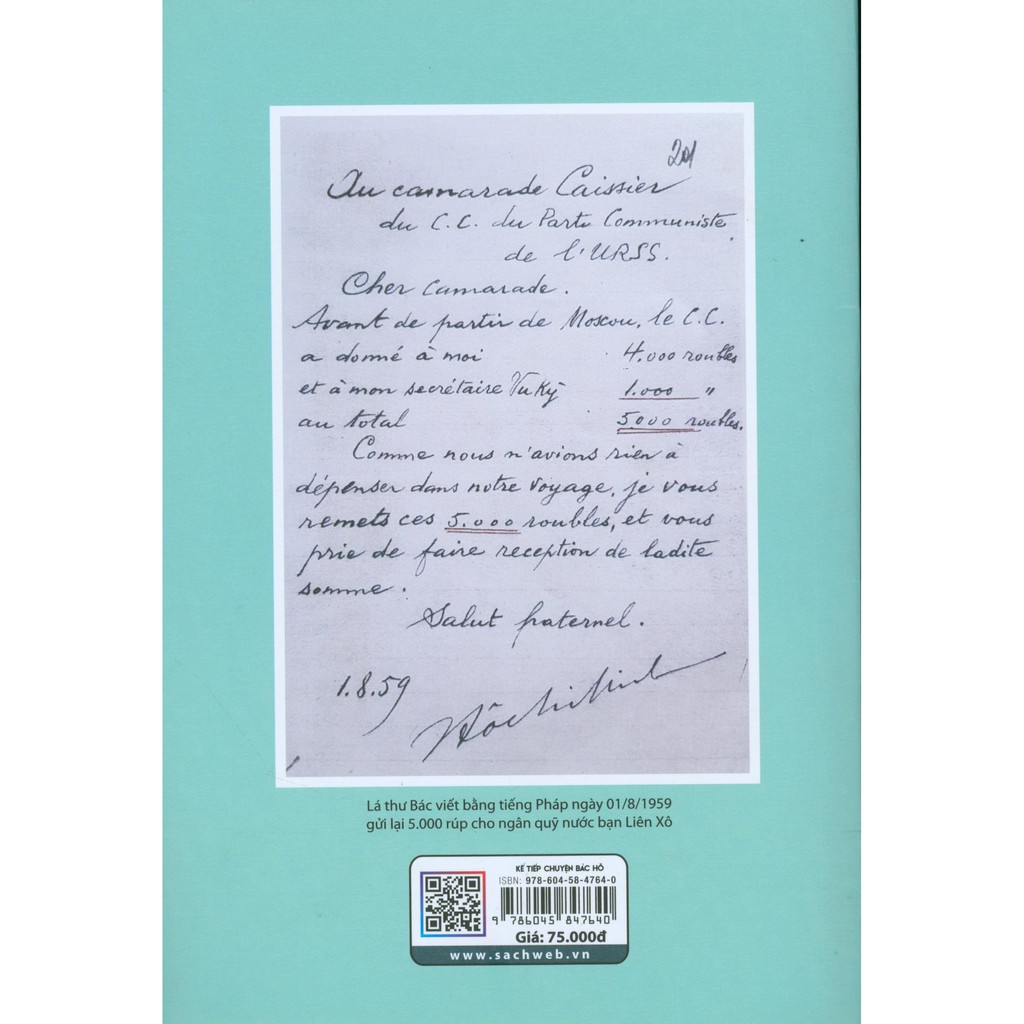 201
Au camarade Caissier
du C.C. du Parti Communiste
de l'URSS.
Cher camarade.
Avant de partir de Moscou, le C.C.
a donné à moi 4.000 roubles
et à mon secrétaire Vu Kỳ 1.000 "
au total 5.000 roubles.
Comme nous n'avions rien à
dépenser dans notre voyage, je vous
remets ces 5.000 roubles, et vous
prie de faire reception de ladite
somme.
Salut fraternel.
1.8.59
Hồ Chí Minh
Lá thư Bác viết bằng tiếng Pháp ngày 01/8/1959
gửi lại 5.000 rúp cho ngân quỹ nước bạn Liên Xô
KỂ TIẾP CHUYỆN BÁC HỒ
ISBN: 978-604-58-4764-0
9 786045 847640
Giá: 75.000đ
www.sachweb.vn